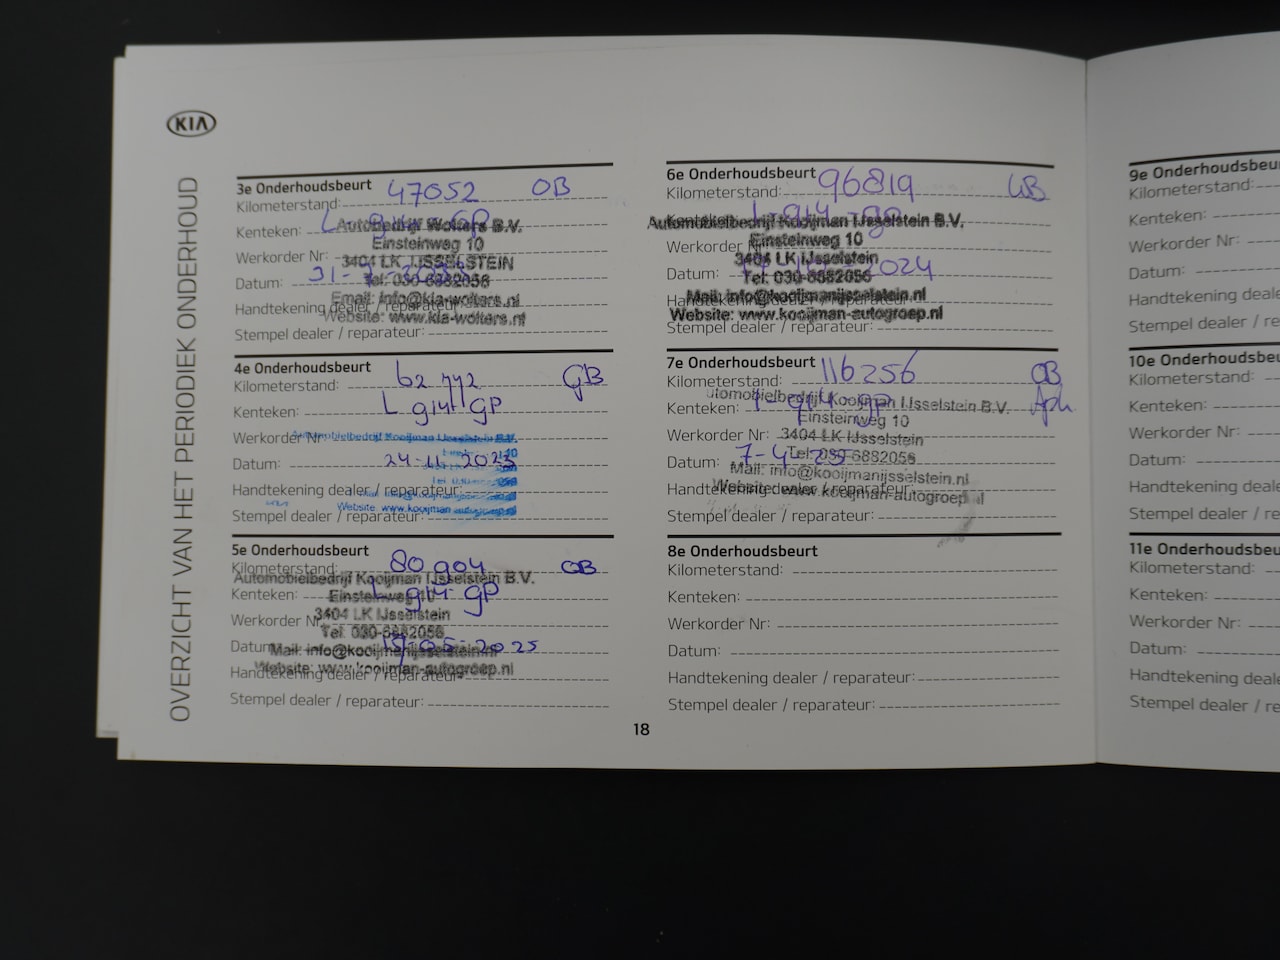 KIA
OVERZICHT VAN HET PERIODIEK ONDERHOUD
3e Onderhoudsbeurt
Kilometerstand: 47052 OB
Kenteken: L-914-GP
Autobedrijf Wolters B.V.
Einsteinweg 10
Werkorder Nr:
3404 LK IJSSELSTEIN
Datum: 31-
Tel: 030-6882056
Email: info@kia-wolters.nl
Handtekening dealer / reparateur:
Website: www.kia-wolters.nl
Stempel dealer / reparateur:
4e Onderhoudsbeurt
Kilometerstand: GB
Kenteken: L 914 GP
Werkorder Nr:
Automobielbedrijf Kooijman IJsselstein B.V.
Datum: 24-11-2023
Handtekening dealer / reparateur:
Website: www.kooijman-autogroep.nl
Stempel dealer / reparateur:
5e Onderhoudsbeurt
Kilometerstand: 80904 OB
Automobielbedrijf Kooijman IJsselstein B.V.
Kenteken: L-914-GP
Einsteinweg 10
Werkorder Nr:
3404 LK IJsselstein
Tel: 030-6882056
Datum: 05-2025
Mail: info@kooijmanijsselstein.nl
Website: www.kooijman-autogroep.nl
Handtekening dealer / reparateur:
Stempel dealer / reparateur:
6e Onderhoudsbeurt
Kilometerstand: 96819
Kenteken: L-914-GP
Automobielbedrijf Kooijman IJsselstein B.V.
Einsteinweg 10
Werkorder Nr:
3404 LK IJsselstein
Datum: 024
Tel: 030-6882056
Mail: info@kooijmanijsselstein.nl
Handtekening dealer / reparateur:
Website: www.kooijman-autogroep.nl
Stempel dealer / reparateur:
7e Onderhoudsbeurt
Kilometerstand: 116256 OB
Automobielbedrijf Kooijman IJsselstein B.V.
Kenteken: L-914 GP
Einsteinweg 10
Werkorder Nr:
3404 LK IJsselstein
Datum: 7-4-25
Tel: 030-6882056
Mail: info@kooijmanijsselstein.nl
Handtekening dealer / reparateur:
Website: www.kooijman-autogroep.nl
Stempel dealer / reparateur:
8e Onderhoudsbeurt
Kilometerstand:
Kenteken:
Werkorder Nr:
Datum:
Handtekening dealer / reparateur:
Stempel dealer / reparateur:
18
9e Onderhoudsbeu
Kilometerstand:
Kenteken:
Werkorder Nr:
Datum:
Handtekening deale
Stempel dealer / re
10e Onderhoudsbe
Kilometerstand:
Kenteken:
Werkorder Nr:
Datum:
Handtekening deale
Stempel dealer / re
11e Onderhoudsbeu
Kilometerstand:
Kenteken:
Werkorder Nr:
Datum:
Handtekening deale
Stempel dealer / re